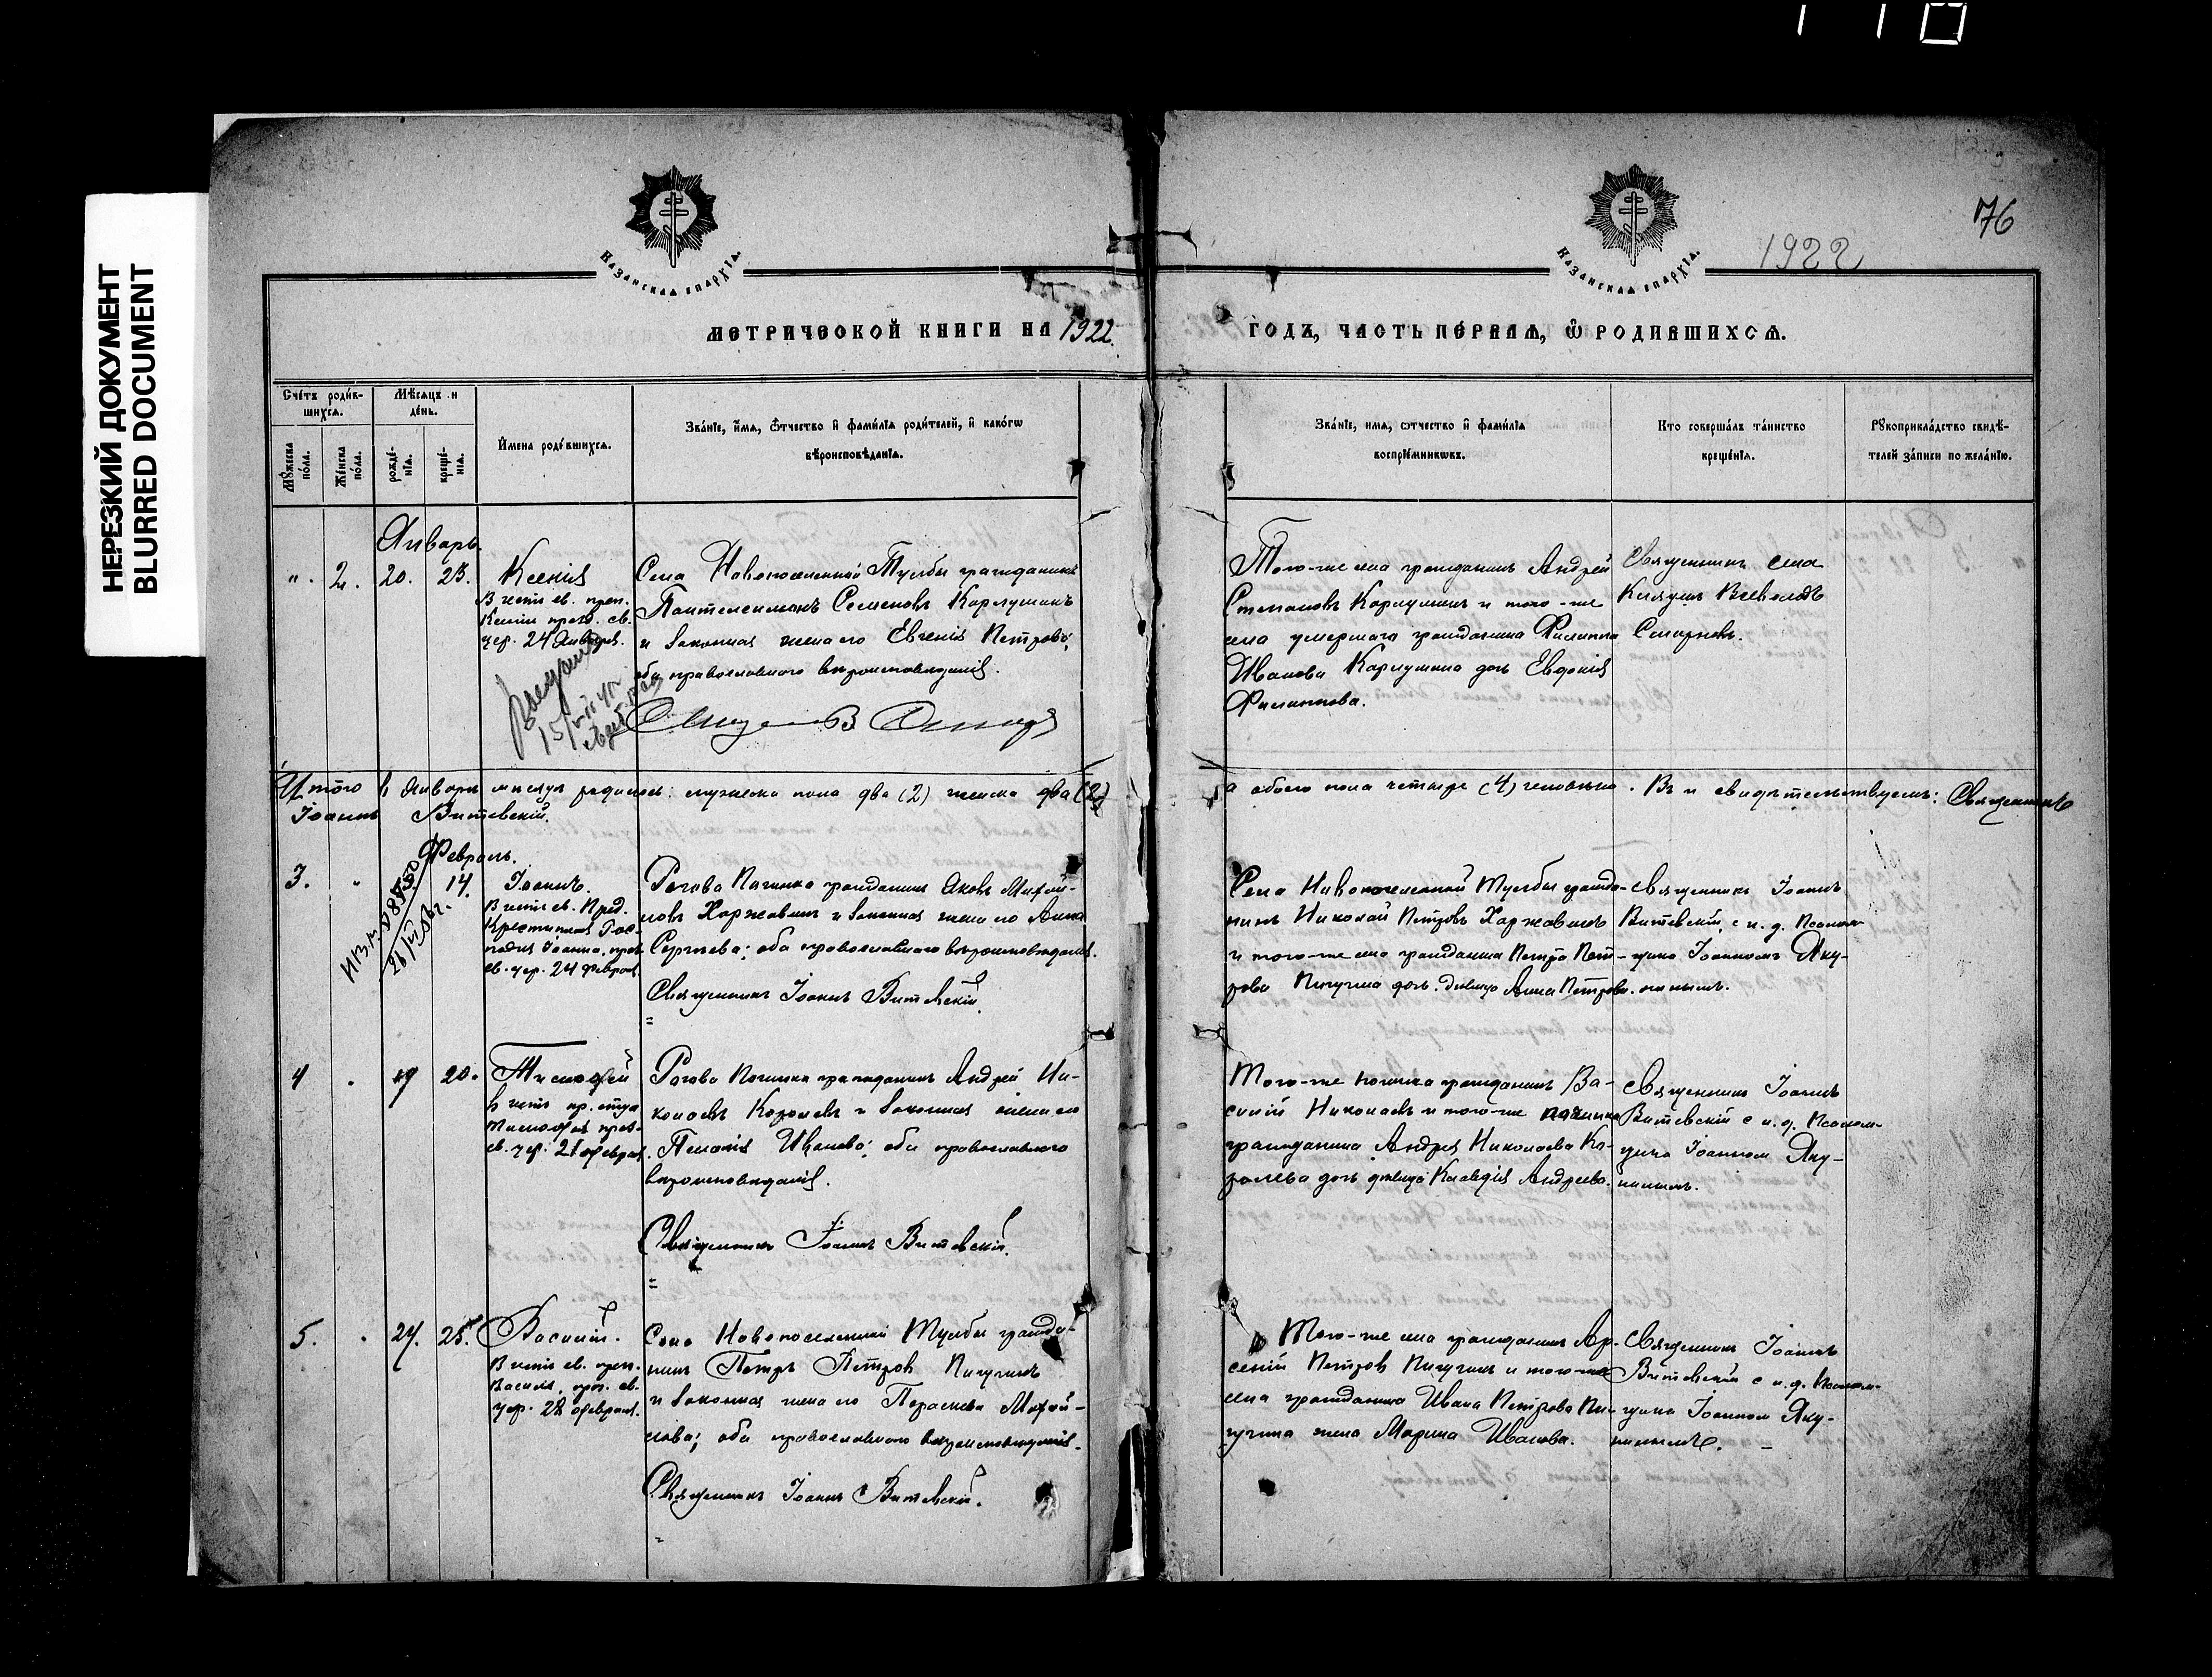 НЕРЕЗКИЙ ДОКУМЕНТ
BLURRED DOCUMENT
76
1922
Казанская епархїѧ.
Казанская епархїѧ.
МЕТРИЧЕСКОЙ КНИГИ НА 1922.
ГОДЪ, ЧАСТЬ ПЕРВАѦ, Ѿ РОДИВШИХСѦ.
Счетъ родившихсѧ.
Мѣсѧцъ и день.
Мꙋжеска пола.
Женска пола.
рождениѧ.
крещениѧ.
Имена родившихсѧ.
Званїе, имѧ, ѿчество и фамилїѧ родителей, и какогѡ
вѣроисповѣданїѧ.
Званїе, имѧ, ѿчество и фамилїѧ
воспрїемникѡвъ.
Кто совершалъ таинство
крещенїѧ.
Рꙋкоприкладство свидѣтелей записи по желанїю.
Январь.
". 2. 20. 23. Ксенія
В честь св. преп.
Ксении празд. св.
цер. 24 Января.
Села Новопоселенной Тумбы гражданинъ
Пантелеимонъ Семеновъ Карпушинъ
и законная жена его Евгенія Петрова;
оба православного вероисповеданія.
Того-же села гражданинъ Андрей
Степановъ Карпушинъ и того-же
села умершаго гражданина Филиппа
Иванова Карпушина дочь Евдокія
Филиппова.
Священникъ села
Всеволодъ
Смирновъ.
Итого в Январе месяце родилось: мужеска пола два (2) женска два (2)
а обоего пола четыре (4) человека. В чем свидетельствуемъ: Священникъ
Іоаннъ Витевскій.
Февраль.
3. " 14. Іоаннъ.
В честь св. Пред.
Крестителя Гос-
подня Іоанна, праз.
св. цер. 24 Февраля
Рогова Починка гражданинъ Яковъ Михай-
ловъ Харжавинъ и законная жена его Анна
Сергеева; оба православного вероисповеданія.
Священникъ Іоаннъ Витевскій.
Села Новопоселенной Тумбы гражда-
нинъ Николай Петровъ Харжавинъ
и того-же села гражданина Петра Пет-
рова Пичугина дочь девица Анна Петрова.
Священникъ Іоаннъ
Витевскій, с и. д. Псалом-
щика Іоанномъ Яку-
ниным.
4 " 19 20. Тимофей
В честь пр. отца
Тимофея праз.
св. цер. 21 февраля.
Рогова Починка гражданинъ Андрей Ни-
колаевъ Королевъ и законная жена его
Пелагія Иванова; оба православного
вероисповеданія.
Священникъ Іоаннъ Витевскій.
Того-же починка гражданинъ Ва-
силій Николаевъ и того-же починка
гражданина Андрея Николаева Ко-
ролева дочь девица Клавдія Андреева.
Священникъ Іоаннъ
Витевскій с и. д. Псалом-
щика Іоанном Яку-
ниным.
5. " 24. 25. Василій.
В честь св. преп.
Василія, праз. св.
цер. 28 февраля.
Села Новопоселенной Тумбы гражда-
нинъ Петръ Петров Пичугинъ
и законная жена его Параскева Михай-
лова; оба православного вероисповеданія.
Священникъ Іоаннъ Витевскій.
Того-же села гражданинъ Ар-
сеній Петров Пичугинъ и того-же
села гражданина Ивана Петрова Пи-
чугина жена Марина Иванова.
Священникъ Іоаннъ
Витевскій с и. д. Псалом-
щика Іоанном Яку-
ниным.